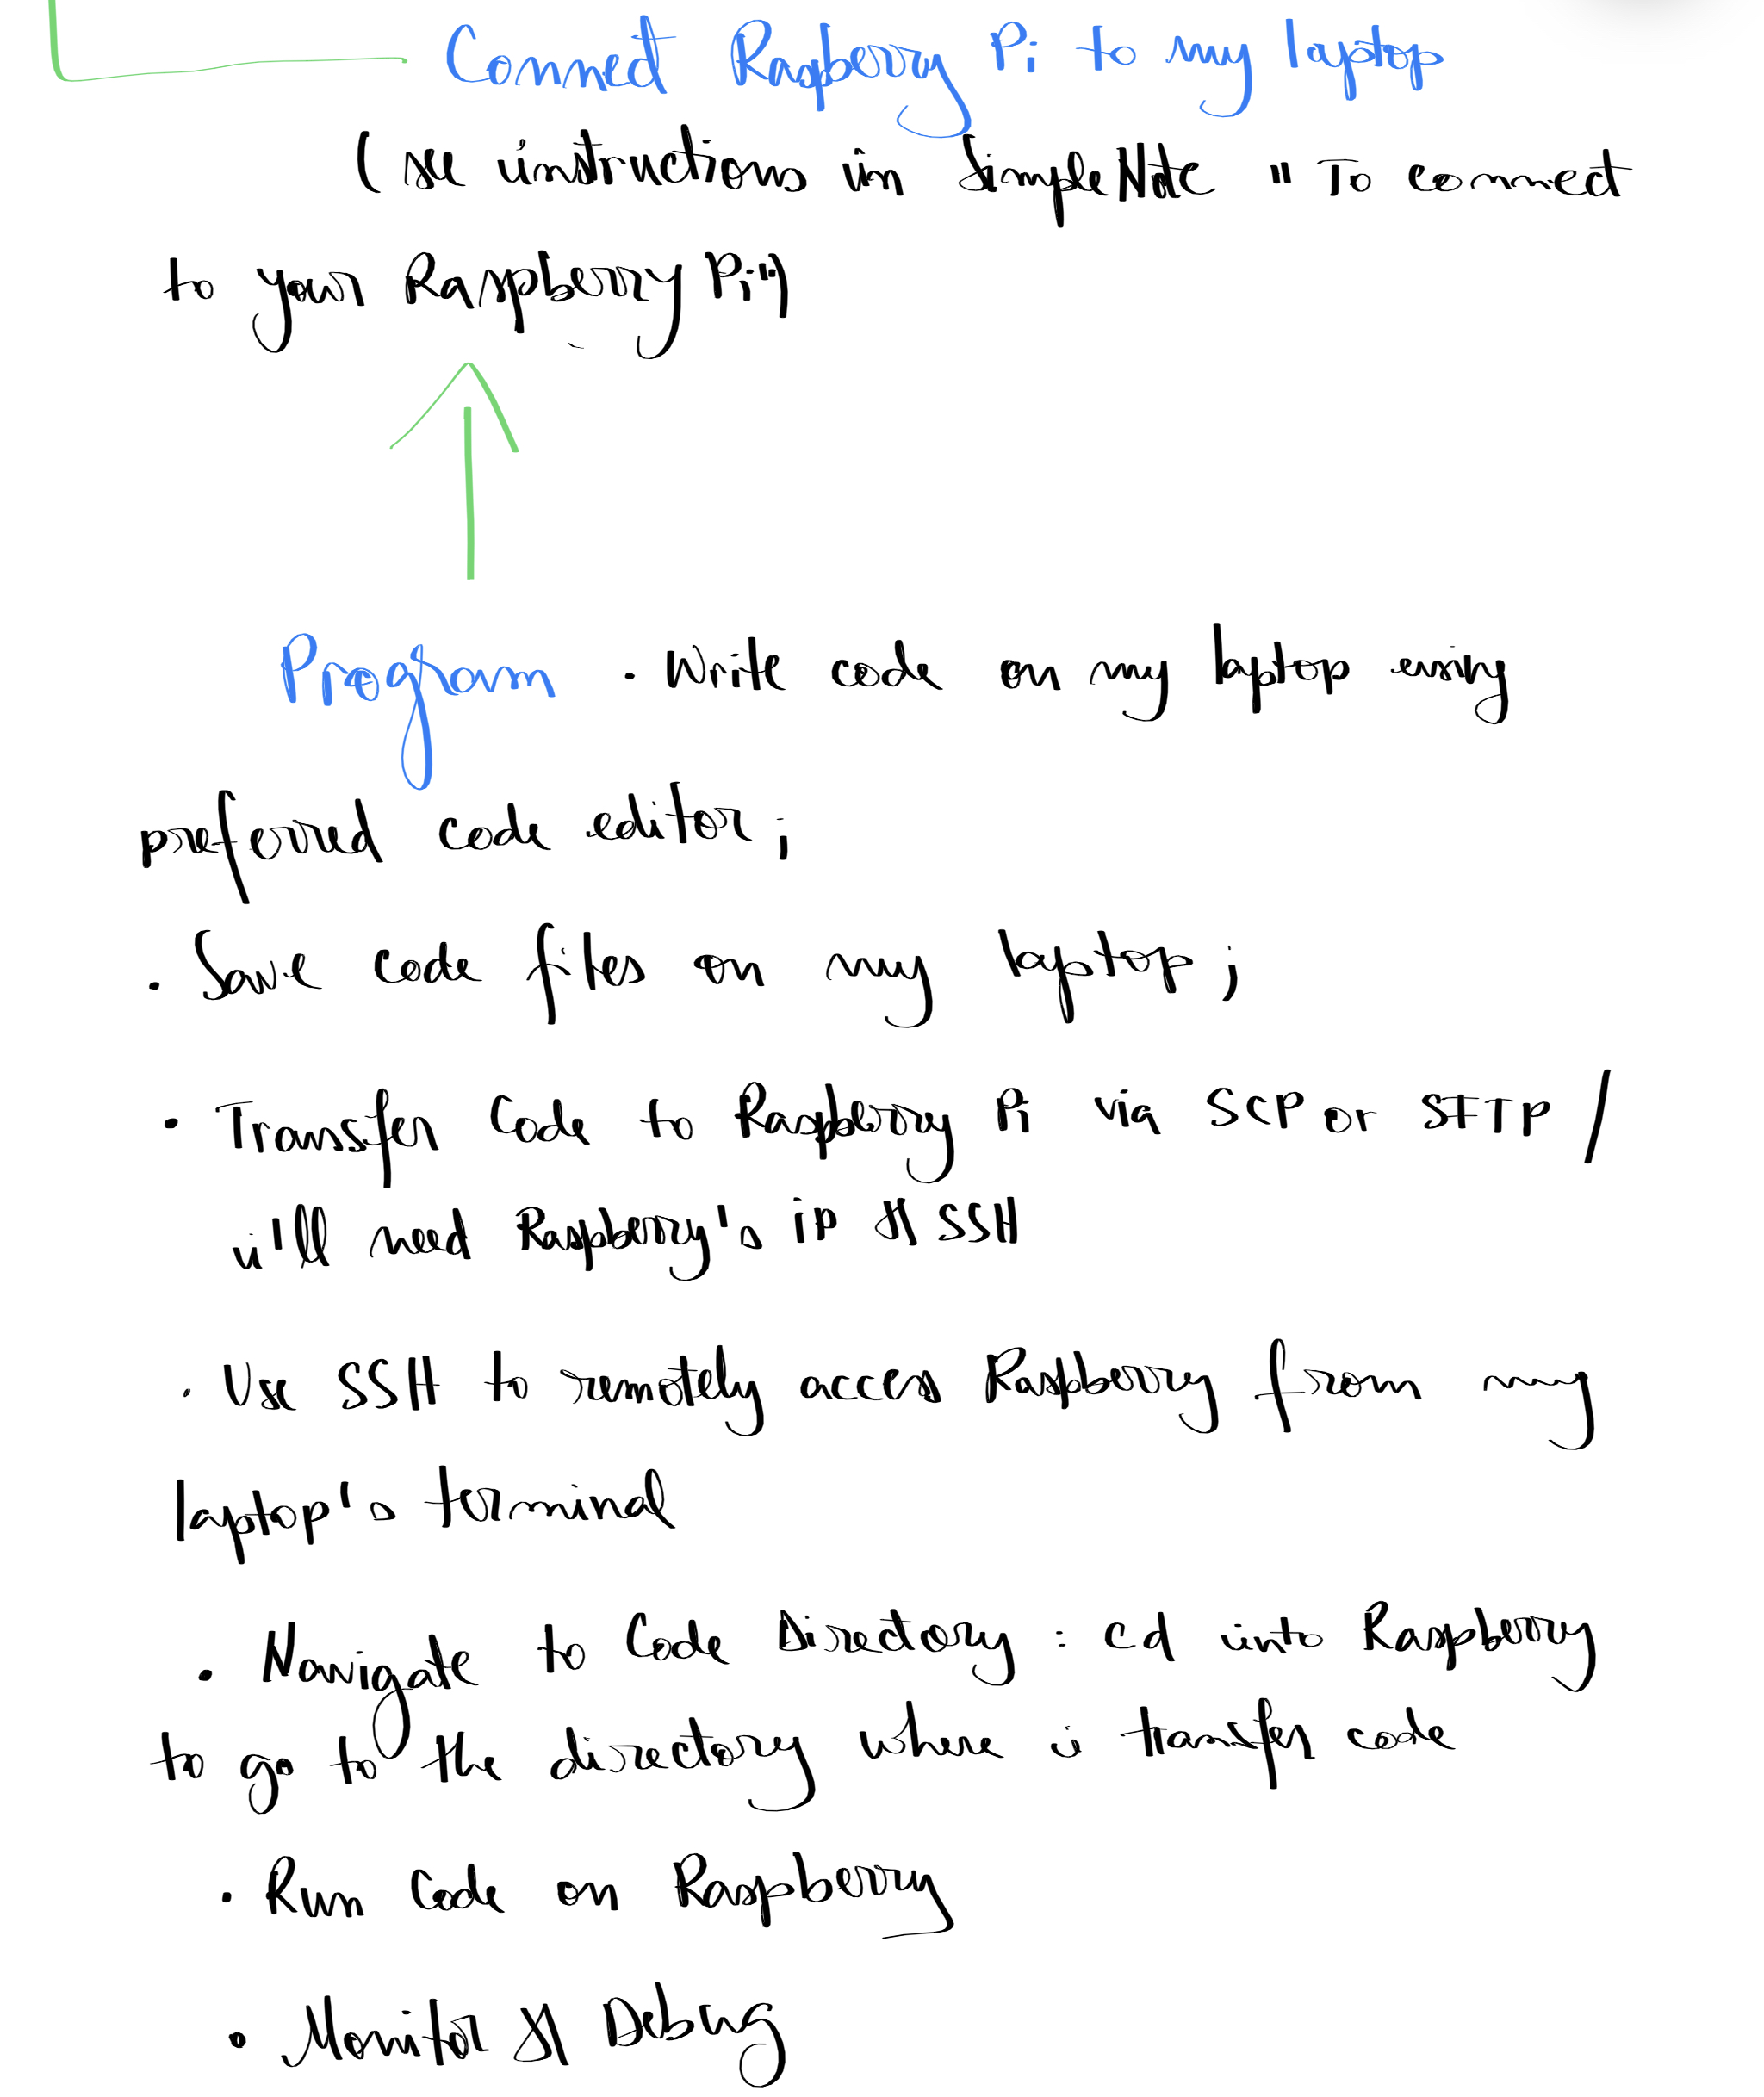 Connect Raspberry Pi to my laptop
(see instructions in SimpleNote "To connect
to your Raspberry Pi")
Program · Write code on my laptop using
preferred code editor;
· Save code files on my laptop;
· Transfer Code to Raspberry Pi via SCP or SFTP /
i'll need Raspberry's ip & SSH
· Use SSH to remotely access Raspberry from my
laptop's terminal
· Navigate to Code Directory : cd into Raspberry
to go to the directory where i transfer code
· Run Code on Raspberry
· Monitor & Debug